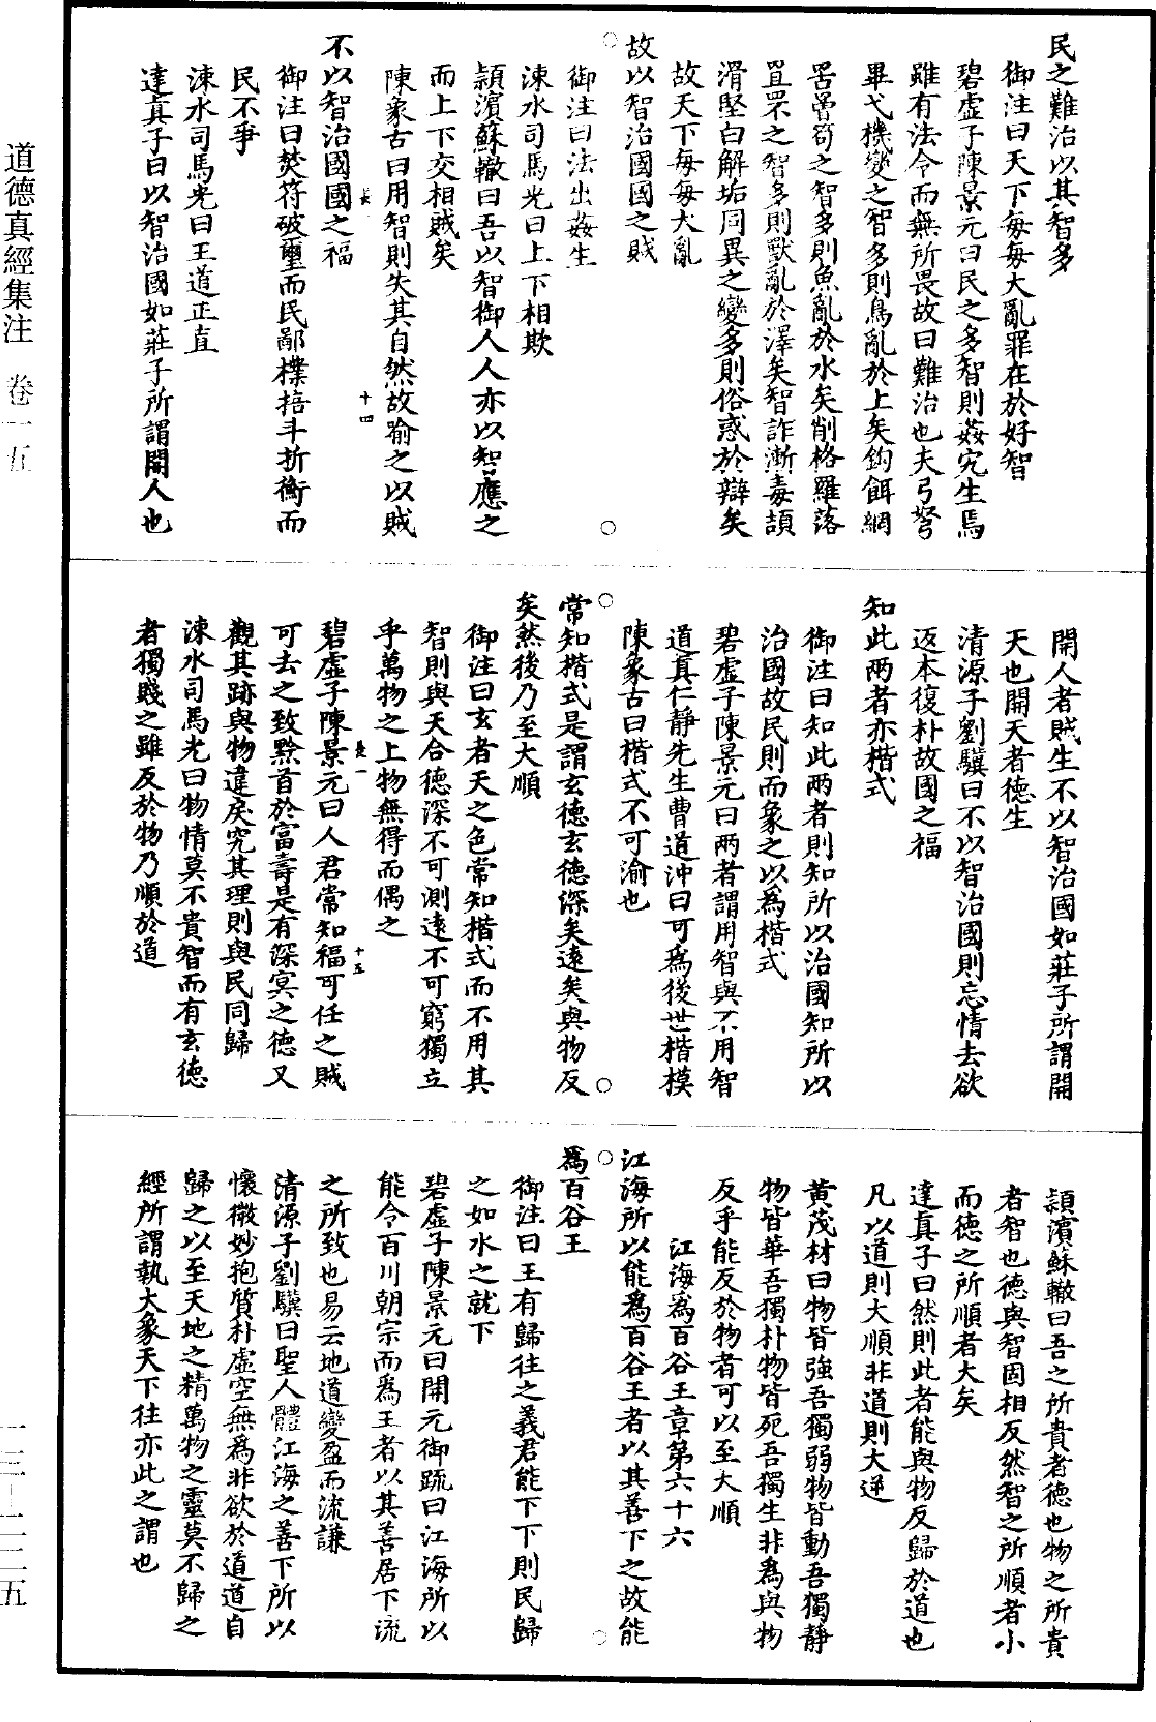 民之難治以其智多
御注曰天下每每大亂罪在於好智
碧虛子陳景元曰民之多智則姦宄生焉
雖有法令而無所畏故曰難治也夫弓弩
畢弋機變之智多則鳥亂於上矣鈎餌網
罟罾笱之智多則魚亂於水矣削格羅落
罝罘之智多則獸亂於澤矣智詐漸毒頡
滑堅白解垢同異之變多則俗惑於辯矣
故天下每每大亂
故以智治國國之賊
御注曰法出姦生
涑水司馬光曰上下相欺
潁濱蘇轍曰吾以智御人人亦以智應之
而上下交相賊矣
陳象古曰用智則失其自然故喻之以賊
長一
十四
不以智治國國之福
御注曰焚符破璽而民鄙樸掊斗折衡而
民不爭
涑水司馬光曰王道正直
達真子曰以智治國如莊子所謂開人也
開人者賊生不以智治國如莊子所謂開
天也開天者德生
清源子劉驥曰不以智治國則忘情去欲
返本復朴故國之福
知此兩者亦楷式
御注曰知此兩者則知所以治國知所以
治國故民則而象之以為楷式
碧虛子陳景元曰兩者謂用智與不用智
道真仁靜先生曹道沖曰可為後世楷模
陳象古曰楷式不可渝也
常知楷式是謂玄德玄德深矣遠矣與物反
矣然後乃至大順
御注曰玄者天之色常知楷式而不用其
智則與天合德深不可測遠不可窮獨立
乎萬物之上物無得而偶之
長一
十五
碧虛子陳景元曰人君常知福可任之賊
可去之致黔首於富壽是有深冥之德又
觀其跡與物違戾究其理則與民同歸
涑水司馬光曰物情莫不貴智而有玄德
者獨賤之雖反於物乃順於道
潁濱蘇轍曰吾之所貴者德也物之所貴
者智也德與智固相反然智之所順者小
而德之所順者大矣
達真子曰然則此者能與物反歸於道也
凡以道則大順非道則大逆
黃茂材曰物皆強吾獨弱物皆動吾獨靜
物皆華吾獨朴物皆死吾獨生非為與物
反乎能反於物者可以至大順
江海為百谷王章第六十六
江海所以能為百谷王者以其善下之故能
為百谷王
御注曰王有歸往之義君能下下則民歸
之如水之就下
碧虛子陳景元曰開元御疏曰江海所以
能令百川朝宗而為王者以其善居下流
之所致也易云地道變盈而流謙
清源子劉驥曰聖人體江海之善下所以
懷微妙抱質朴虛空無為非欲於道道自
歸之以至天地之精萬物之靈莫不歸之
經所謂執大象天下往亦此之謂也
道德真經集注　卷一五
一三—二二五